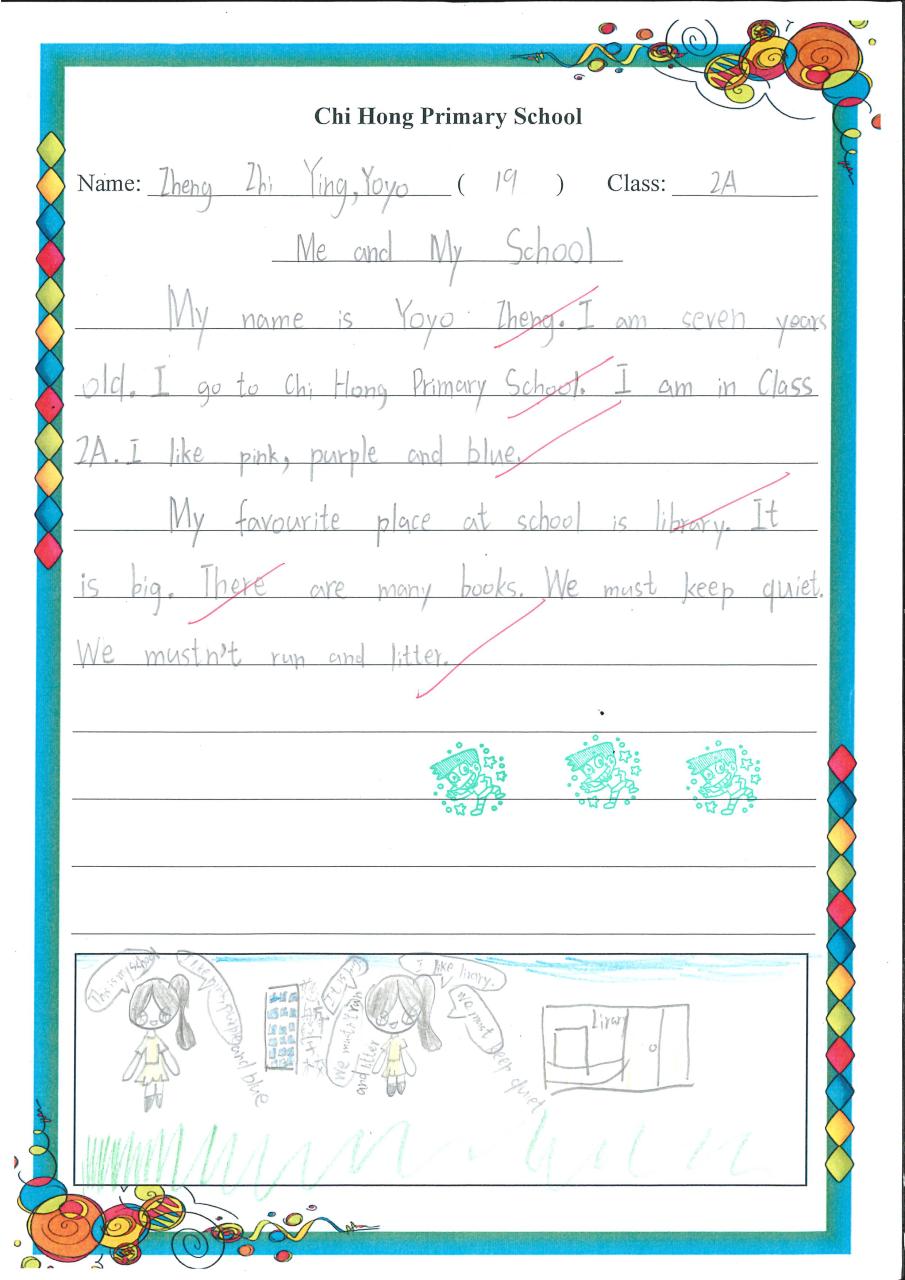 Chi Hong Primary School
Name: Zheng Zhi Ying, Yoyo ( 19 ) Class: 2A
Me and My School
My name is Yoyo Zheng. I am seven years
old. I go to Chi Hong Primary School. I am in Class
2A. I like pink, purple and blue.
My favourite place at school is library. It
is big. There are many books. We must keep quiet.
We mustn't run and litter.
This is my school
and blue
It is big
We mustn't run
and litter
I like lirary.
We must keep quiet
Lirary